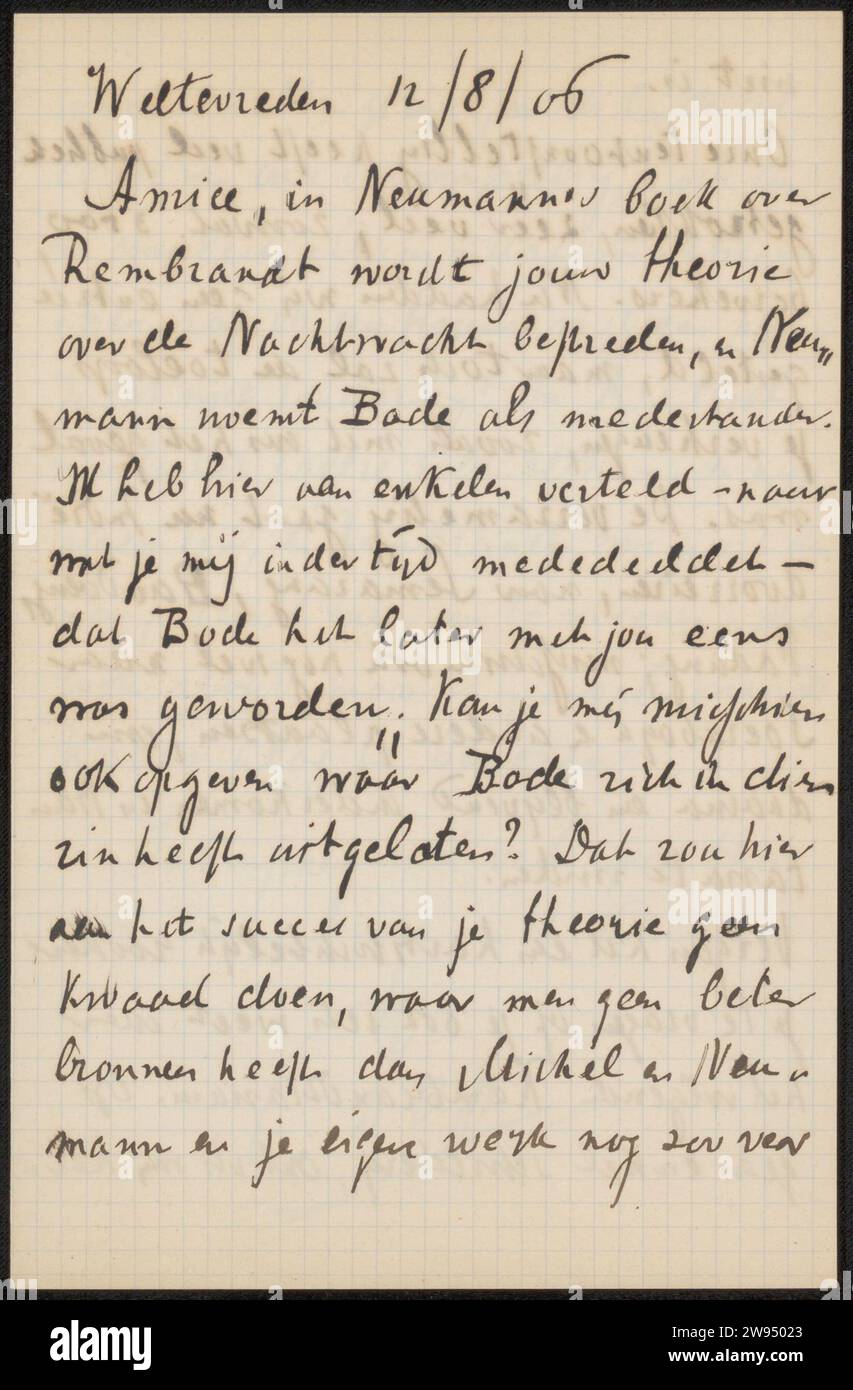 Weltevreden 12/8/06
Amice, in Neumann's boek over
Rembrandt wordt jouw theorie
over de Nachtwacht bespreden, en Neu„
mann noemt Bode als medestander.
Ik heb hier aan enkelen verteld - naar
wat je mij indertijd mededeeldet —
dat Bode het later met jou eens
was geworden. Kan je mij misschien
ook opgeven wáár Bode zich in dien
zin heeft uitgelaten? Dat zou hier
aan het succes van je theorie geen
kwaad doen, waar men geen beter
bronnen heeft dan Michel en Neu„
mann en je eigen werk nog zoo veer
alamy
Image ID: 2W95023
www.alamy.com